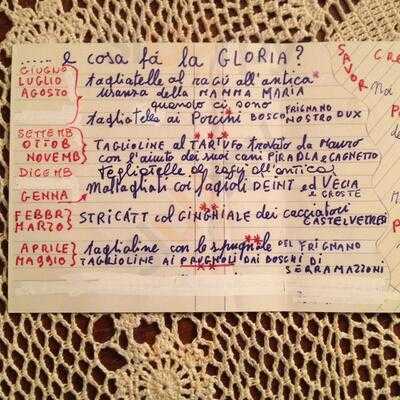 ..... e cosa fà la GLORIA?
GIUGNO
LUGLIO
AGOSTO
tagliatelle al ragù all'antica*
usanza della MAMMA MARIA
quando ci sono
tagliatelle ai Porcini BOSCO FRIGNANO
NOSTRO DUX
SETTEMB
OTTOB
NOVEMB
DICEMB
TAGLIOLINE al TARTUFO trovato da Mauro
con l'aiuto dei suoi cani PIRA DLA e CAGNETTO
tagliatelle al ragù all'antica
GENNA
Maltagliati coi fagioli DEINT ed VECIA
e CROSTE
FEBBR
MARZO
STRICÀTT col CINGHIALE dei cacciatori
CASTELVETRESI
APRILE
MAGGIO
taglioline con le spugnole DEL FRIGNANO
TAGLIOLINE AI PRUGNOLI DAI BOSCHI DI
SERRAMAZZONI
SAVOR
CRE